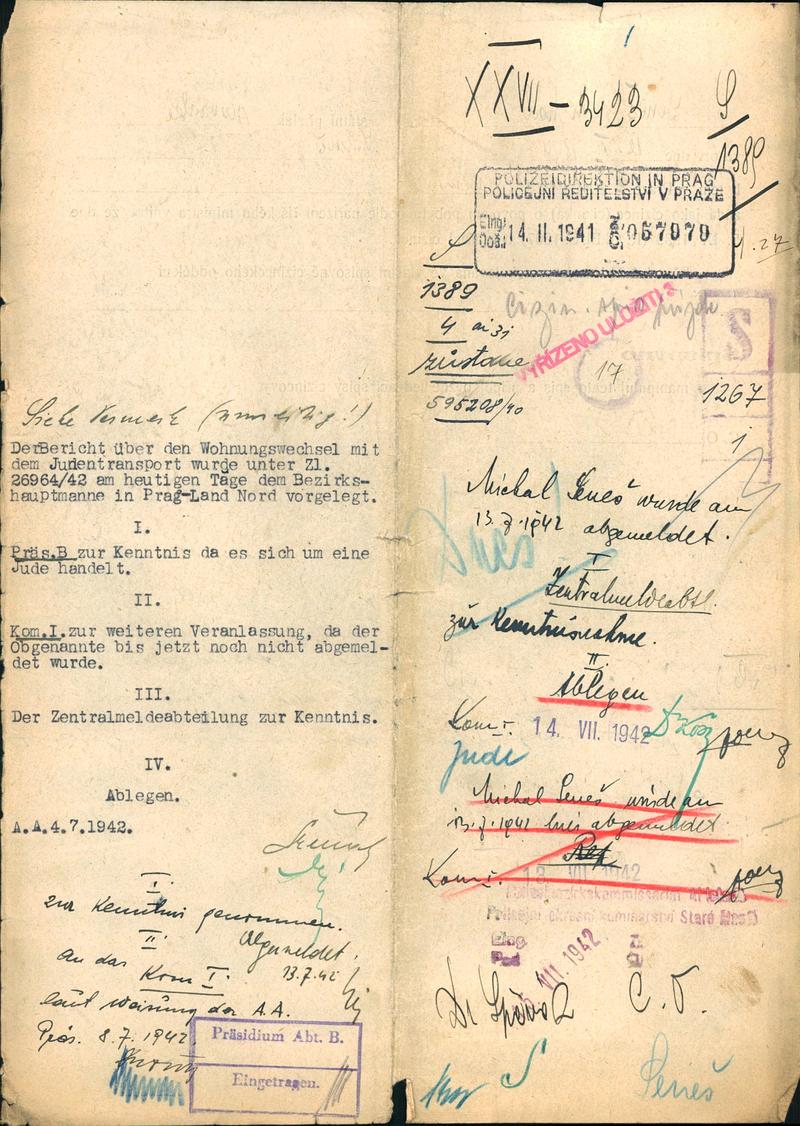 Siehe Vermerk
DerBericht über den Wohnungswechsel mit
dem Judentransport wurde unter Zl.
26964/42 am heutigen Tage dem Bezirks-
hauptmanne in Prag-Land Nord vorgelegt.
I.
Präs.B zur Kenntnis da es sich um eine
Jude handelt.
II.
Kom.I.zur weiteren Veranlassung, da der
Obgenannte bis jetzt noch nicht abgemel-
det wurde.
III.
Der Zentralmeldeabteilung zur Kenntnis.
IV.
Ablegen.
A.A.4.7.1942.
I.
zur Kenntnis genommen.
II.
Abgemeldet.
an das Kom I.
13.7.42
laut Weisung der A.A.
Präs. 8.7.1942
Präsidium Abt. B.
Eingetragen.
XXVII - 3423
S
1389
POLIZEIDIREKTION IN PRAG
POLICEJNÍ ŘEDITELSTVÍ V PRAZE
Eing.
Došl.
14. II. 1941
067979
S
1389
4 až 31
VYŘÍZENO ULOŽITI
zůstane
17
595208/40
S
1267
1
Michal Seneš wurde am
13.7.1942 abgemeldet.
I
Zentralmeldeabtl.
zur Kenntnisnahme.
II.
Ablegen
Kom I.
14. VII. 1942
Jude
Michal Seneš wurde am
13.7.1942 hier abgemeldet
Ref
Kom I.
13. VII. 1942
Policejní okresní komisařství Staré Město
Eing.
VII. 1942
Dr
Seneš